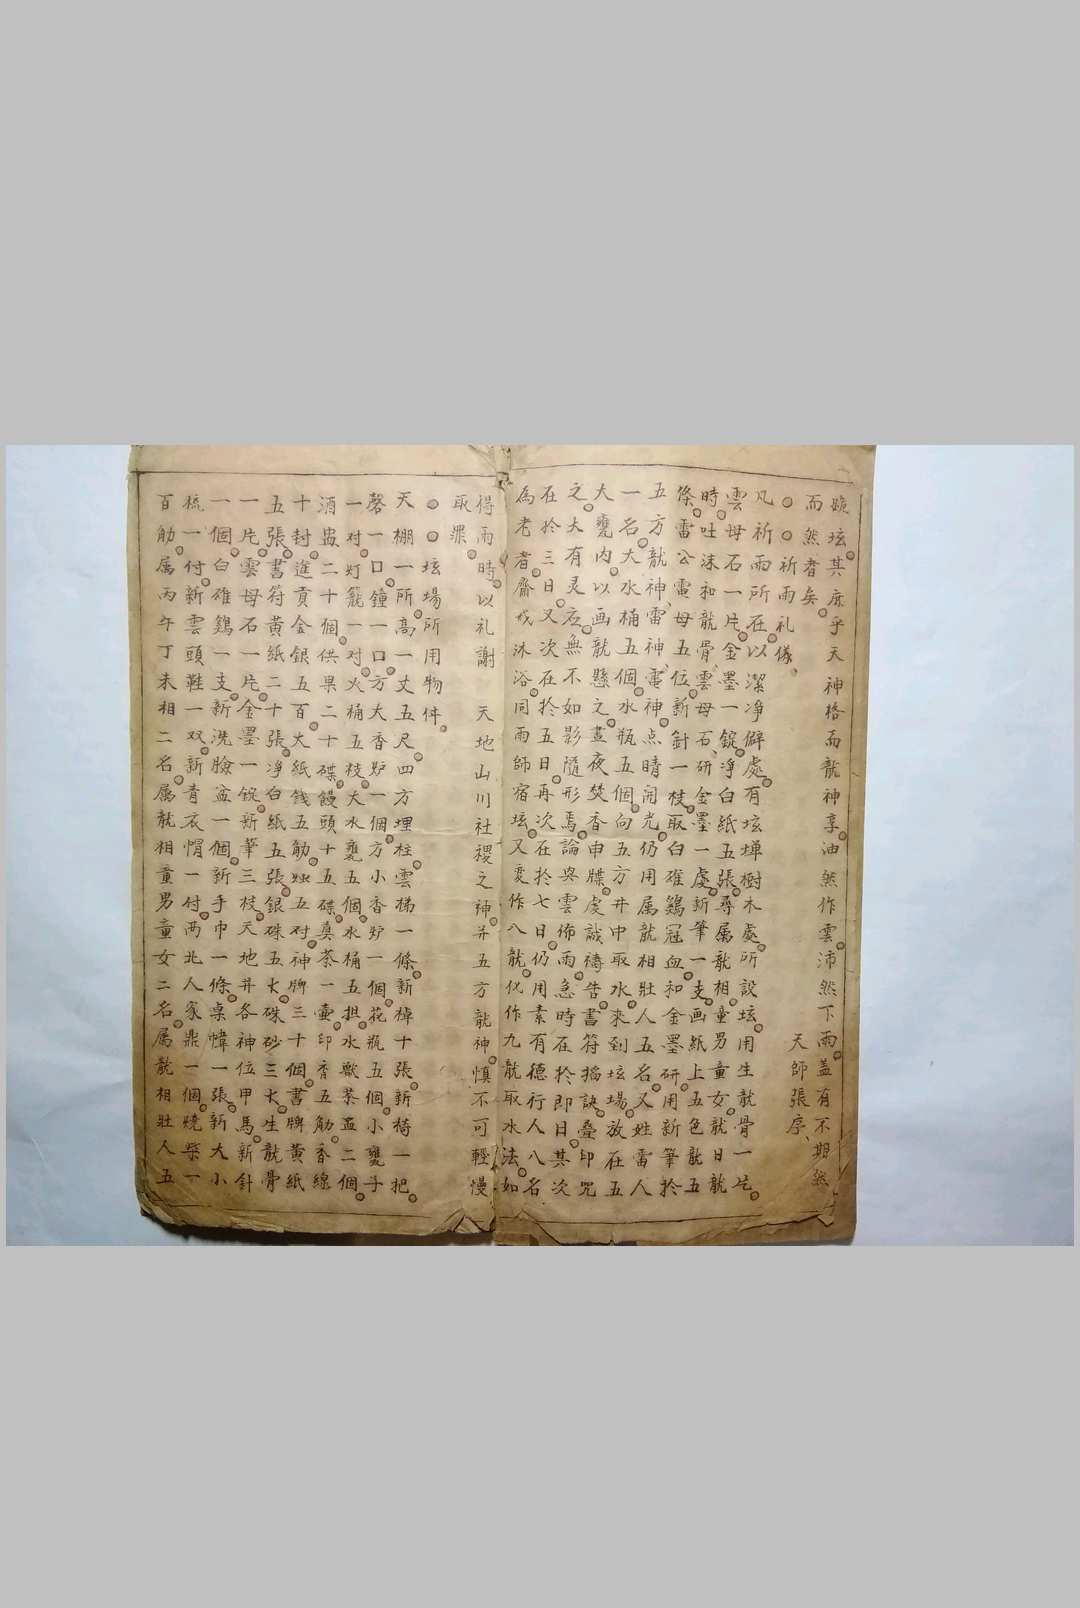 壇其庶乎天神格而龍神享油然作雲沛然下雨蓋有不期然
而然者矣
天師張序
祈雨礼儀
凡祈雨所在以潔净僻處有坛墠樹木處所設坛用生龍骨一片
雲母石一片金墨一錠净白紙五張尋属龍相童男童女龍日龍
時吐沫和龍骨雲母石研金墨一處新筆一支画紙上五色龍五
條雷公電母五位新針一枝取白雄鷄冠血和金墨研用新筆於
五方龍神雷神電神点睛開光仍用属龍相壯人五名又姓雷人
一名大水桶五個水瓶五個向五方井中取水來到坛場放在五
大甕内以画龍懸之晝夜焚香申牒虔誠禱告書符掐訣叠印咒
之大有灵应無不如影隨形焉論興雲佈雨急時在於即日其次
在於三日又次在於五日再次在於七日仍用素有德行人八名
為老者齋戒沐浴同雨師宿坛又变作八龍化作九龍取水法如
得雨時以礼謝天地山川社稷之神并五方龍神慎不可輕慢
取罪
坛場所用物件
天棚一所高一丈五尺四方埋柱雲梯一條新棹十張新椅一把
磬一口鐘一口方大香炉一個方小香炉一個花瓶五個小甕子
一对灯籠一对火桶五枝大水甕五個水桶五担水獻茶盂二個
酒盅二十個供果二十碟饅頭十五碟奠茶一壷印香五觔香線
十封進貢金銀五百大紙錢五觔蝋五对神牌三十個書牌黄紙
五張書符黄紙二十張净白紙五張銀硃五大硃砂三大生龍骨
一片雲母石一片金墨一錠新筆三枝天地并各神位甲馬新針
一個白雄鷄一支新洗臉盆一個新手巾一條桌幃一張新大小
梳一付新雲頭鞋一双新青衣㡌一付两北人家鼎一個燒柴一
百觔属丙午丁未相二名属龍相童男童女二名属龍相壯人五